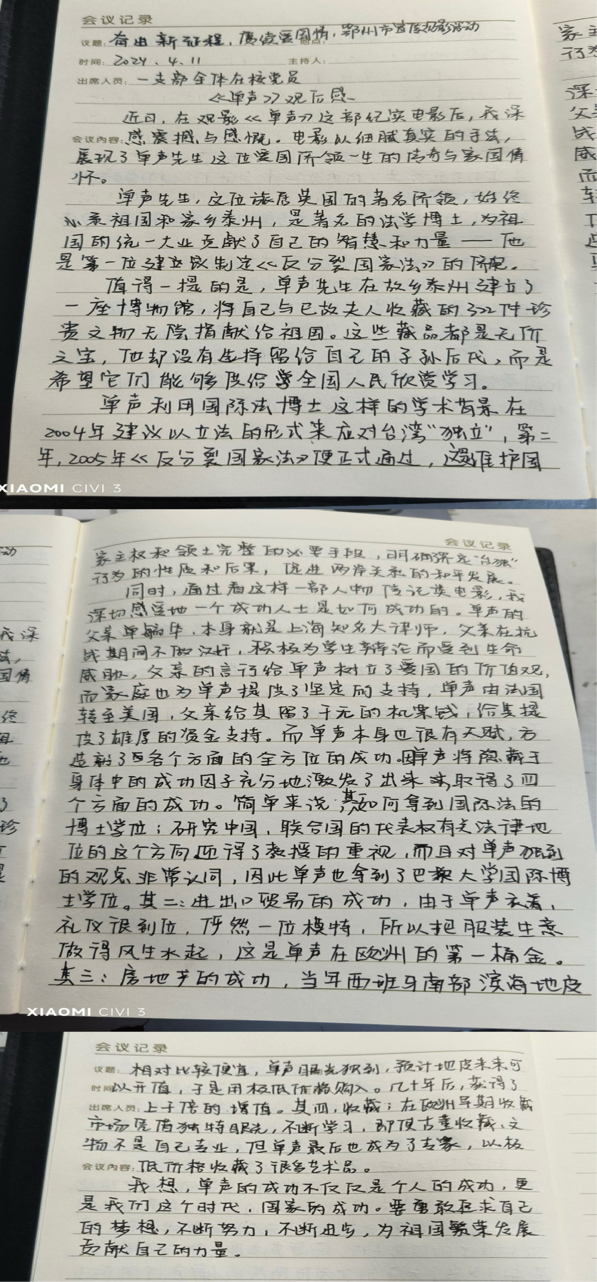 会议记录
议题: 奋进新征程,厚微爱国情,鄂州市宣传观影活动
时间: 2024.4.11 主持人:
出席人员: 一支部全体在校党员
《单声》观后感
近日,在观影《单声》这部纪实电影后,我深
会议内容: 感震撼与感慨。电影以细腻真实的手法,
展现了单声先生这位爱国侨领一生的传奇与家国情
怀。
单声先生,这位旅居英国的著名侨领,始终
心系祖国和家乡泰州,是著名的法学博士,为祖
国的统一大业贡献了自己的智慧和力量——他
是第一位建议制定《反分裂国家法》的侨胞。
值得一提的是,单声先生在故乡泰州建立了
一座博物馆,将自己与已故夫人收藏的322件珍
贵文物无偿捐献给祖国。这些藏品都是无价
之宝,他却没有选择留给自己的子孙后代,而是
希望它们能够供给全国人民欣赏学习。
单声利用国际法博士这样的学术背景在
2004年建议以立法的形式来应对台湾“独立”,第二
年,2005年《反分裂国家法》便正式通过,这是维护国
XIAOMI CIVI 3
会议记录
家主权和领土完整的必要手段,明确界定“台独”
行为的性质和后果,促进两岸关系的和平发展。
同时,通过看这样一部人物传记类电影,我
深切感受地一个成功人士是如何成功的。单声的
父亲单毓华,本身就是上海知名大律师,父亲在抗
战期间不做汉奸,积极为学生辩论而受到生命
威胁,父亲的言行给单声树立了爱国的价值观,
而家庭也为单声提供了坚定的支持,单声由法国
转至美国,父亲给其留了千元的机票钱,给其提
供了雄厚的资金支持。而单声本身也很有天赋,方
造就了各个方面的全方位的成功。单声将隐藏于
身体中的成功因子充分地激发了出来取得了四
个方面的成功。简单来说,其一如何拿到国际法的
博士学位:研究中国,联合国的代表权有关法律地
位的这个方向还得了教授的重视,而且对单声独到
的观点非常认同,因此单声也拿到了巴黎大学国际博
士学位。其二:进出口贸易的成功,由于单声衣着,
礼仪很到位,俨然一位模特,所以把服装生意
做得风生水起,这是单声在欧洲的第一桶金。
其三:房地产的成功,当年西班牙南部滨海地皮
XIAOMI CIVI 3
会议记录
议题: 相对比较便宜,单声眼光独到,预计地皮未来可
时间: 以升值,于是用极低价格购入。几十年后,获得了
出席人员: 上千倍的增值。其四,收藏:在欧洲早期收藏
市场凭借独特眼光,不断学习,即便古董收藏、文
物不是自己专业,但单声最后也成为了专家,以极
会议内容: 低价格收藏了很多艺术品。
我想,单声的成功不仅仅是个人的成功,更
是我们这个时代,国家的成功。要勇敢追求自己
的梦想,不断努力,不断进步,为祖国繁荣发展
贡献自己的力量。